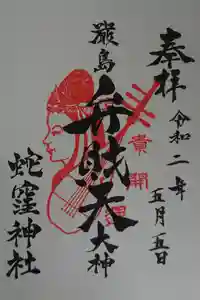 奉拝
令和二年
五月五日
厳島
弁財天
大神
蛇窪神社